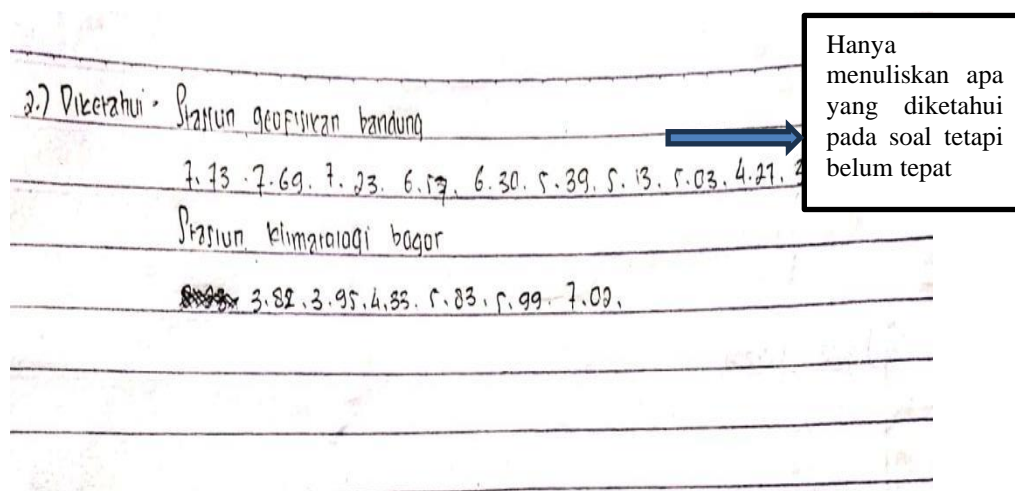 2.) Diketahui · Stasiun geofisikan bandung
7.73 . 7.69 . 7.23. 6.57. 6.30. 5.39. 5.13. 5.03. 4.27.
Stasiun klimatologi bogor
3.82. 3.95. 4.33. 5.83. 5.99 - 7.02.
Hanya
menuliskan apa
yang diketahui
pada soal tetapi
belum tepat